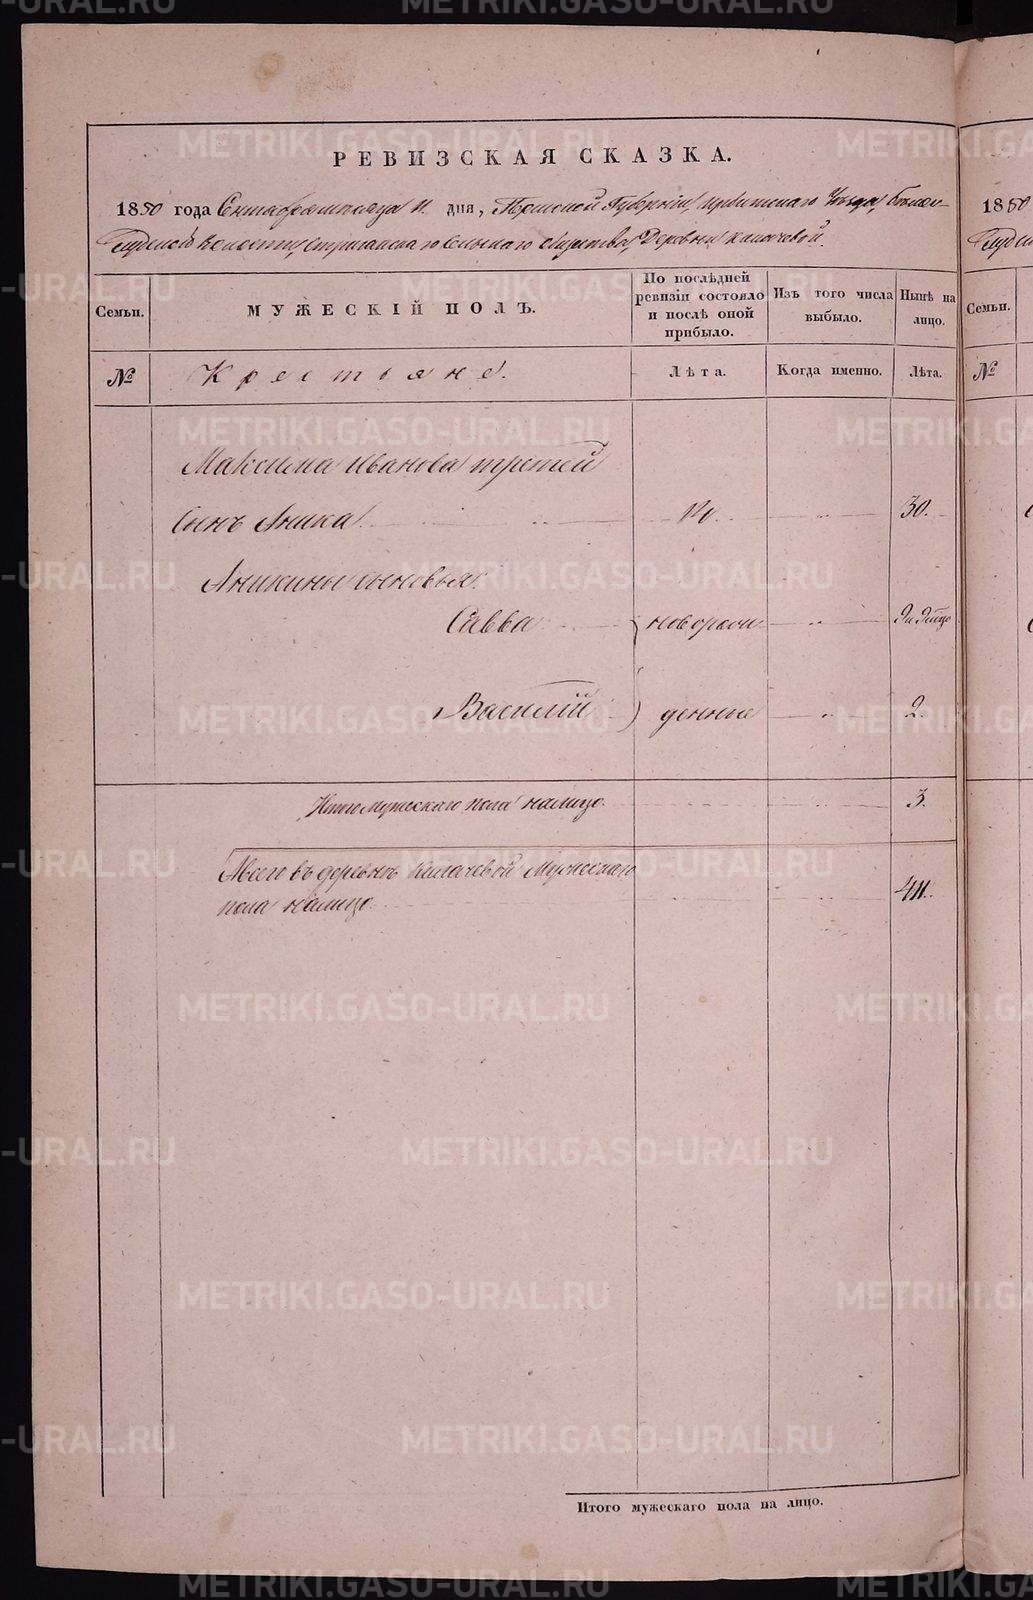 РЕВИЗСКАЯ СКАЗКА.
1850 года Сентября месяца 11. дня, Пермской Губернїи, Ирбитского Уѣзда, Бѣлослудской волости, Стриганскаго Сельскаго общества, Деревни Калачевой.
Семьи.
МУЖЕСКІЙ ПОЛЪ.
По послѣдней ревизіи состояло и послѣ оной прибыло.
Изъ того числа выбыло.
Нынѣ на лицо.
№
Крестьяне.
Лѣта.
Когда именно.
Лѣта.
Максима Иванова третей
сынъ Аника 30.
Аникины сыновья:
Савва новорож
Василій денные 2.
Итого мужескаго пола налицо. 3.
Всего въ деревнѣ Калачевой Мужескаго
пола налицо 411.
Итого мужескаго пола на лицо.
1850
Семьи.
№
METRIKI.GASO-URAL.RU